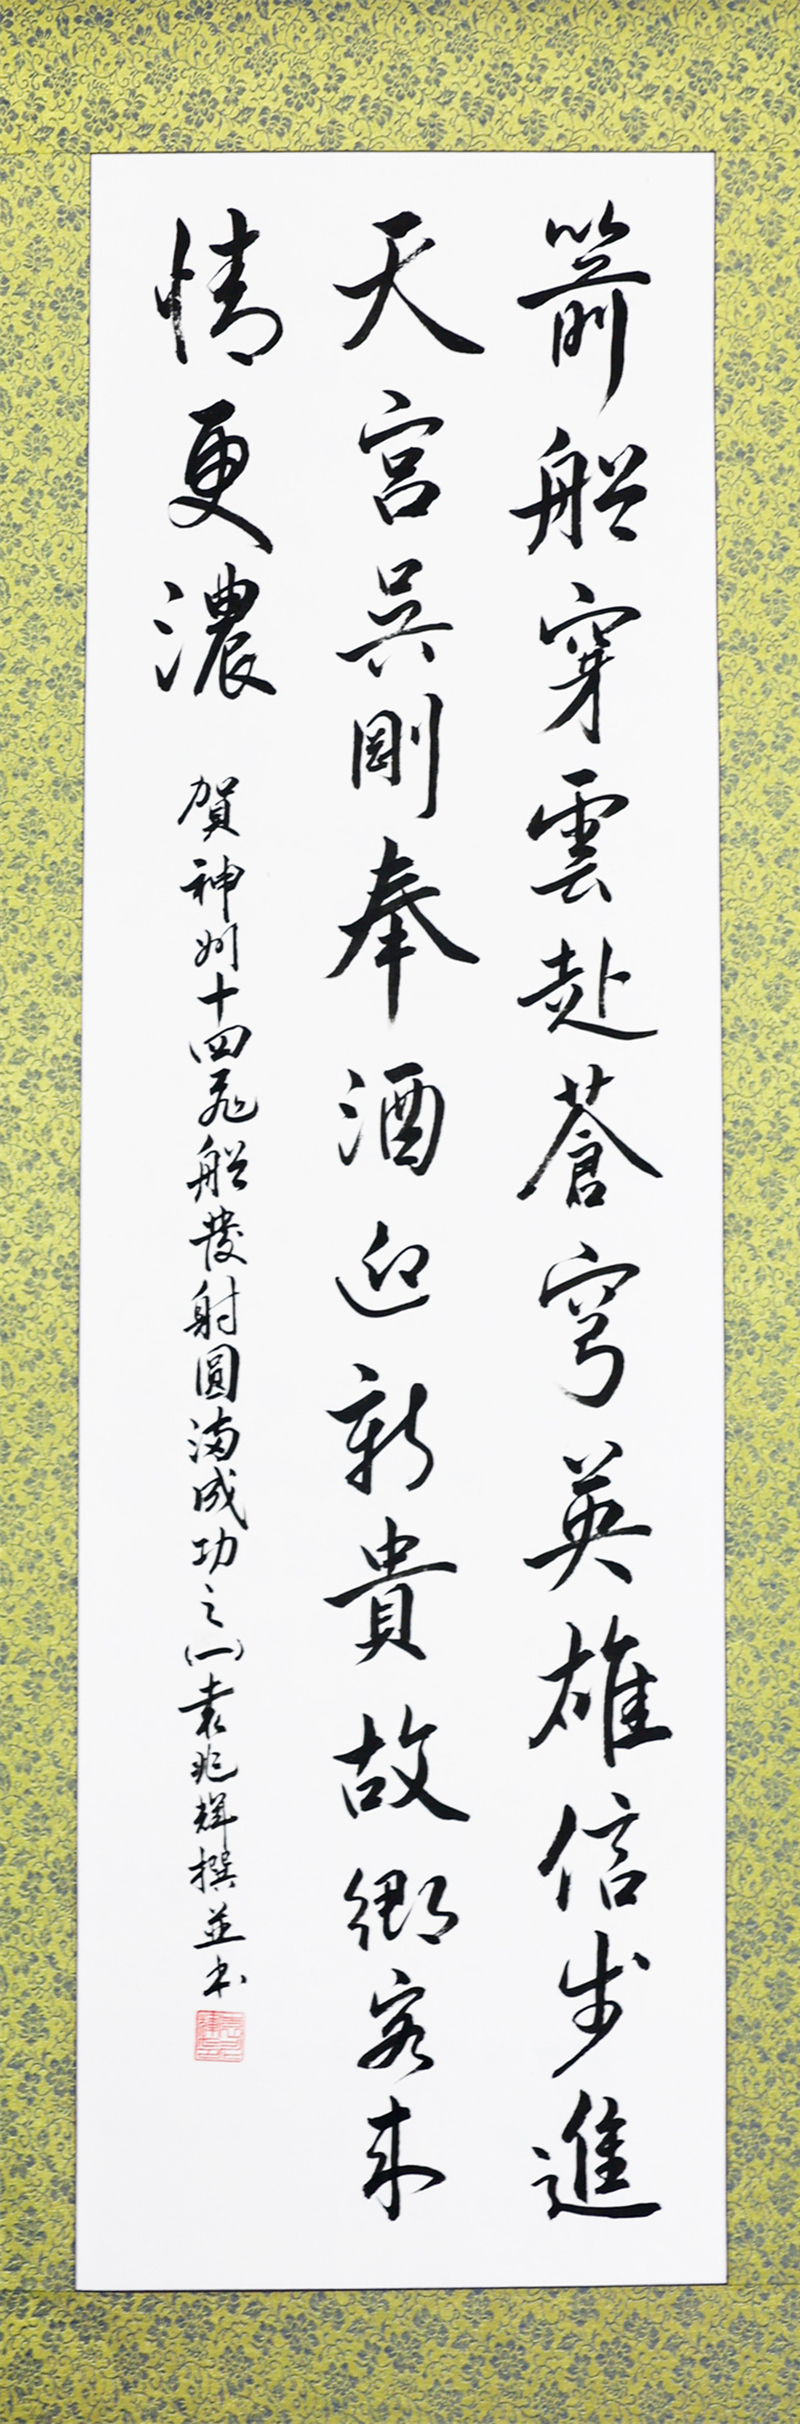 箭船穿雲赴蒼穹英雄信步進
天宮吳剛奉酒迎新貴故鄉客來
情更濃
賀神州十四飛船發射圓滿成功之(一)袁兆輝撰並书